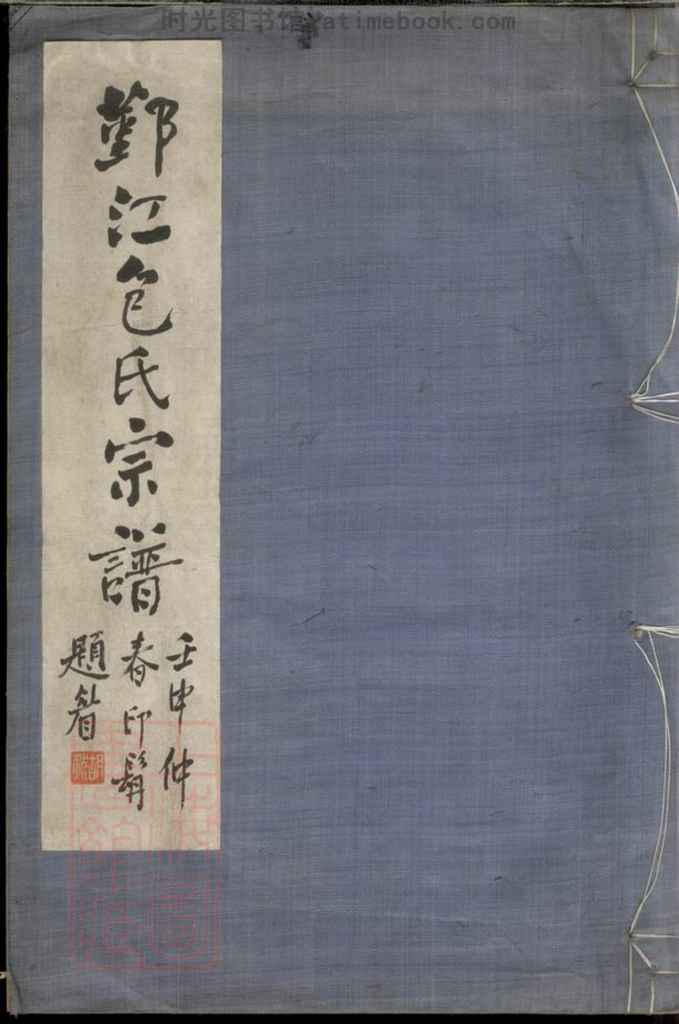 时光图书馆yatimebook.com
鄞江包氏宗譜
壬申仲
春印髯
題